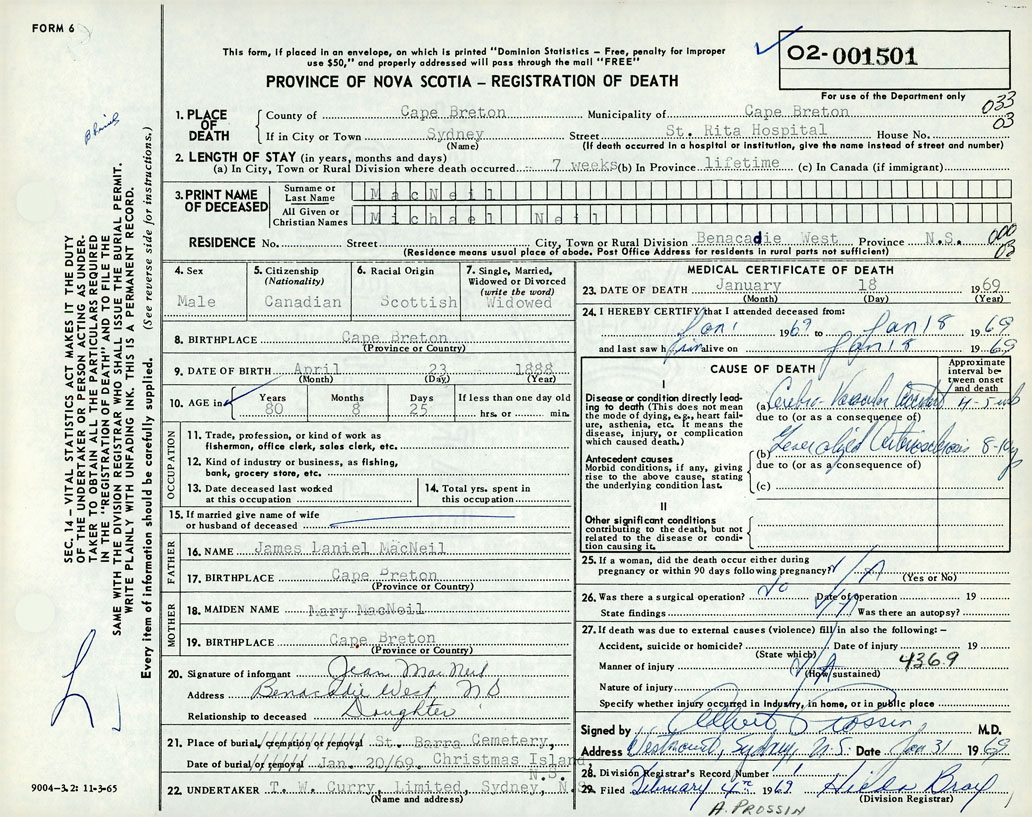 FORM 6
This form, if placed in an envelope, on which is printed "Dominion Statistics – Free, penalty for improper
use $50," and properly addressed will pass through the mail "FREE"
PROVINCE OF NOVA SCOTIA – REGISTRATION OF DEATH
02-001501
For use of the Department only
033
03
1. PLACE OF DEATH
County of Cape Breton Municipality of Cape Breton
If in City or Town Sydney Street St. Rita Hospital House No.
(Name) (If death occurred in a hospital or institution, give the name instead of street and number)
2. LENGTH OF STAY (in years, months and days)
(a) In City, Town or Rural Division where death occurred 7 weeks (b) In Province lifetime (c) In Canada (if immigrant)
3. PRINT NAME OF DECEASED
Surname or Last Name MacNeil
All Given or Christian Names Michael Neil
RESIDENCE No. Street City, Town or Rural Division Benacadie West Province N.S.
(Residence means usual place of abode. Post Office Address for residents in rural parts not sufficient)
000
03
4. Sex
Male
5. Citizenship
(Nationality)
Canadian
6. Racial Origin
Scottish
7. Single, Married,
Widowed or Divorced
(write the word)
Widowed
8. BIRTHPLACE Cape Breton
(Province or Country)
9. DATE OF BIRTH April 23 1888
(Month) (Day) (Year)
10. AGE in
Years Months Days If less than one day old
80 8 25 hrs. or min.
OCCUPATION
11. Trade, profession, or kind of work as
fisherman, office clerk, sales clerk, etc.
12. Kind of industry or business, as fishing,
bank, grocery store, etc.
13. Date deceased last worked
at this occupation
14. Total yrs. spent in
this occupation
15. If married give name of wife
or husband of deceased
FATHER
16. NAME James Laniel MacNeil
17. BIRTHPLACE Cape Breton
(Province or Country)
MOTHER
18. MAIDEN NAME Mary MacNeil
19. BIRTHPLACE Cape Breton
(Province or Country)
20. Signature of informant Jean MacNeil
Address Benacadie West NS
Relationship to deceased Daughter
21. Place of burial, cremation or removal St. Barra Cemetery,
Date of burial or removal Jan. 20/69. Christmas Island,
N.S.
22. UNDERTAKER T. W. Curry, Limited, Sydney, N.S.
(Name and address)
MEDICAL CERTIFICATE OF DEATH
23. DATE OF DEATH January 18 1969
(Month) (Day) (Year)
24. I HEREBY CERTIFY that I attended deceased from:
Jan 1 1969 to Jan 18 1969
and last saw him alive on Jan 18 1969
CAUSE OF DEATH
Approximate
interval be-
tween onset
and death
I
Disease or condition directly lead-
ing to death (This does not mean
the mode of dying, e.g., heart fail-
ure, asthenia, etc. It means the
disease, injury, or complication
which caused death.)
(a) Cerebro-Vascular Accident 4-5 wk
due to (or as a consequence of)
Antecedent causes
Morbid conditions, if any, giving
rise to the above cause, stating
the underlying condition last.
(b) Generalized Arteriosclerosis 8-10 y
due to (or as a consequence of)
(c)
II
Other significant conditions
contributing to the death, but not
related to the disease or condi-
tion causing it.
25. If a woman, did the death occur either during
pregnancy or within 90 days following pregnancy? N/A
(Yes or No)
26. Was there a surgical operation? No Date of operation 19
State findings Was there an autopsy?
27. If death was due to external causes (violence) fill in also the following: –
Accident, suicide or homicide? Date of injury 19
(State which)
Manner of injury N/A 4369
(How sustained)
Nature of injury
Specify whether injury occurred in industry, in home, or in public place
Signed by Albert Prossin M.D.
Address Westmount, Sydney, N.S. Date Jan 31 1969
28. Division Registrar's Record Number
29. Filed February 4th 1969 Hilda Bray
(Division Registrar)
A. PROSSIN
SEC. 14 – VITAL STATISTICS ACT MAKES IT THE DUTY
OF THE UNDERTAKER OR PERSON ACTING AS UNDER-
TAKER TO OBTAIN ALL THE PARTICULARS REQUIRED
IN THE "REGISTRATION OF DEATH" AND TO FILE THE
SAME WITH THE DIVISION REGISTRAR WHO SHALL ISSUE THE BURIAL PERMIT.
WRITE PLAINLY WITH UNFADING INK. THIS IS A PERMANENT RECORD.
Every item of information should be carefully supplied. (See reverse side for instructions.)
9004-3.2: 11-3-65